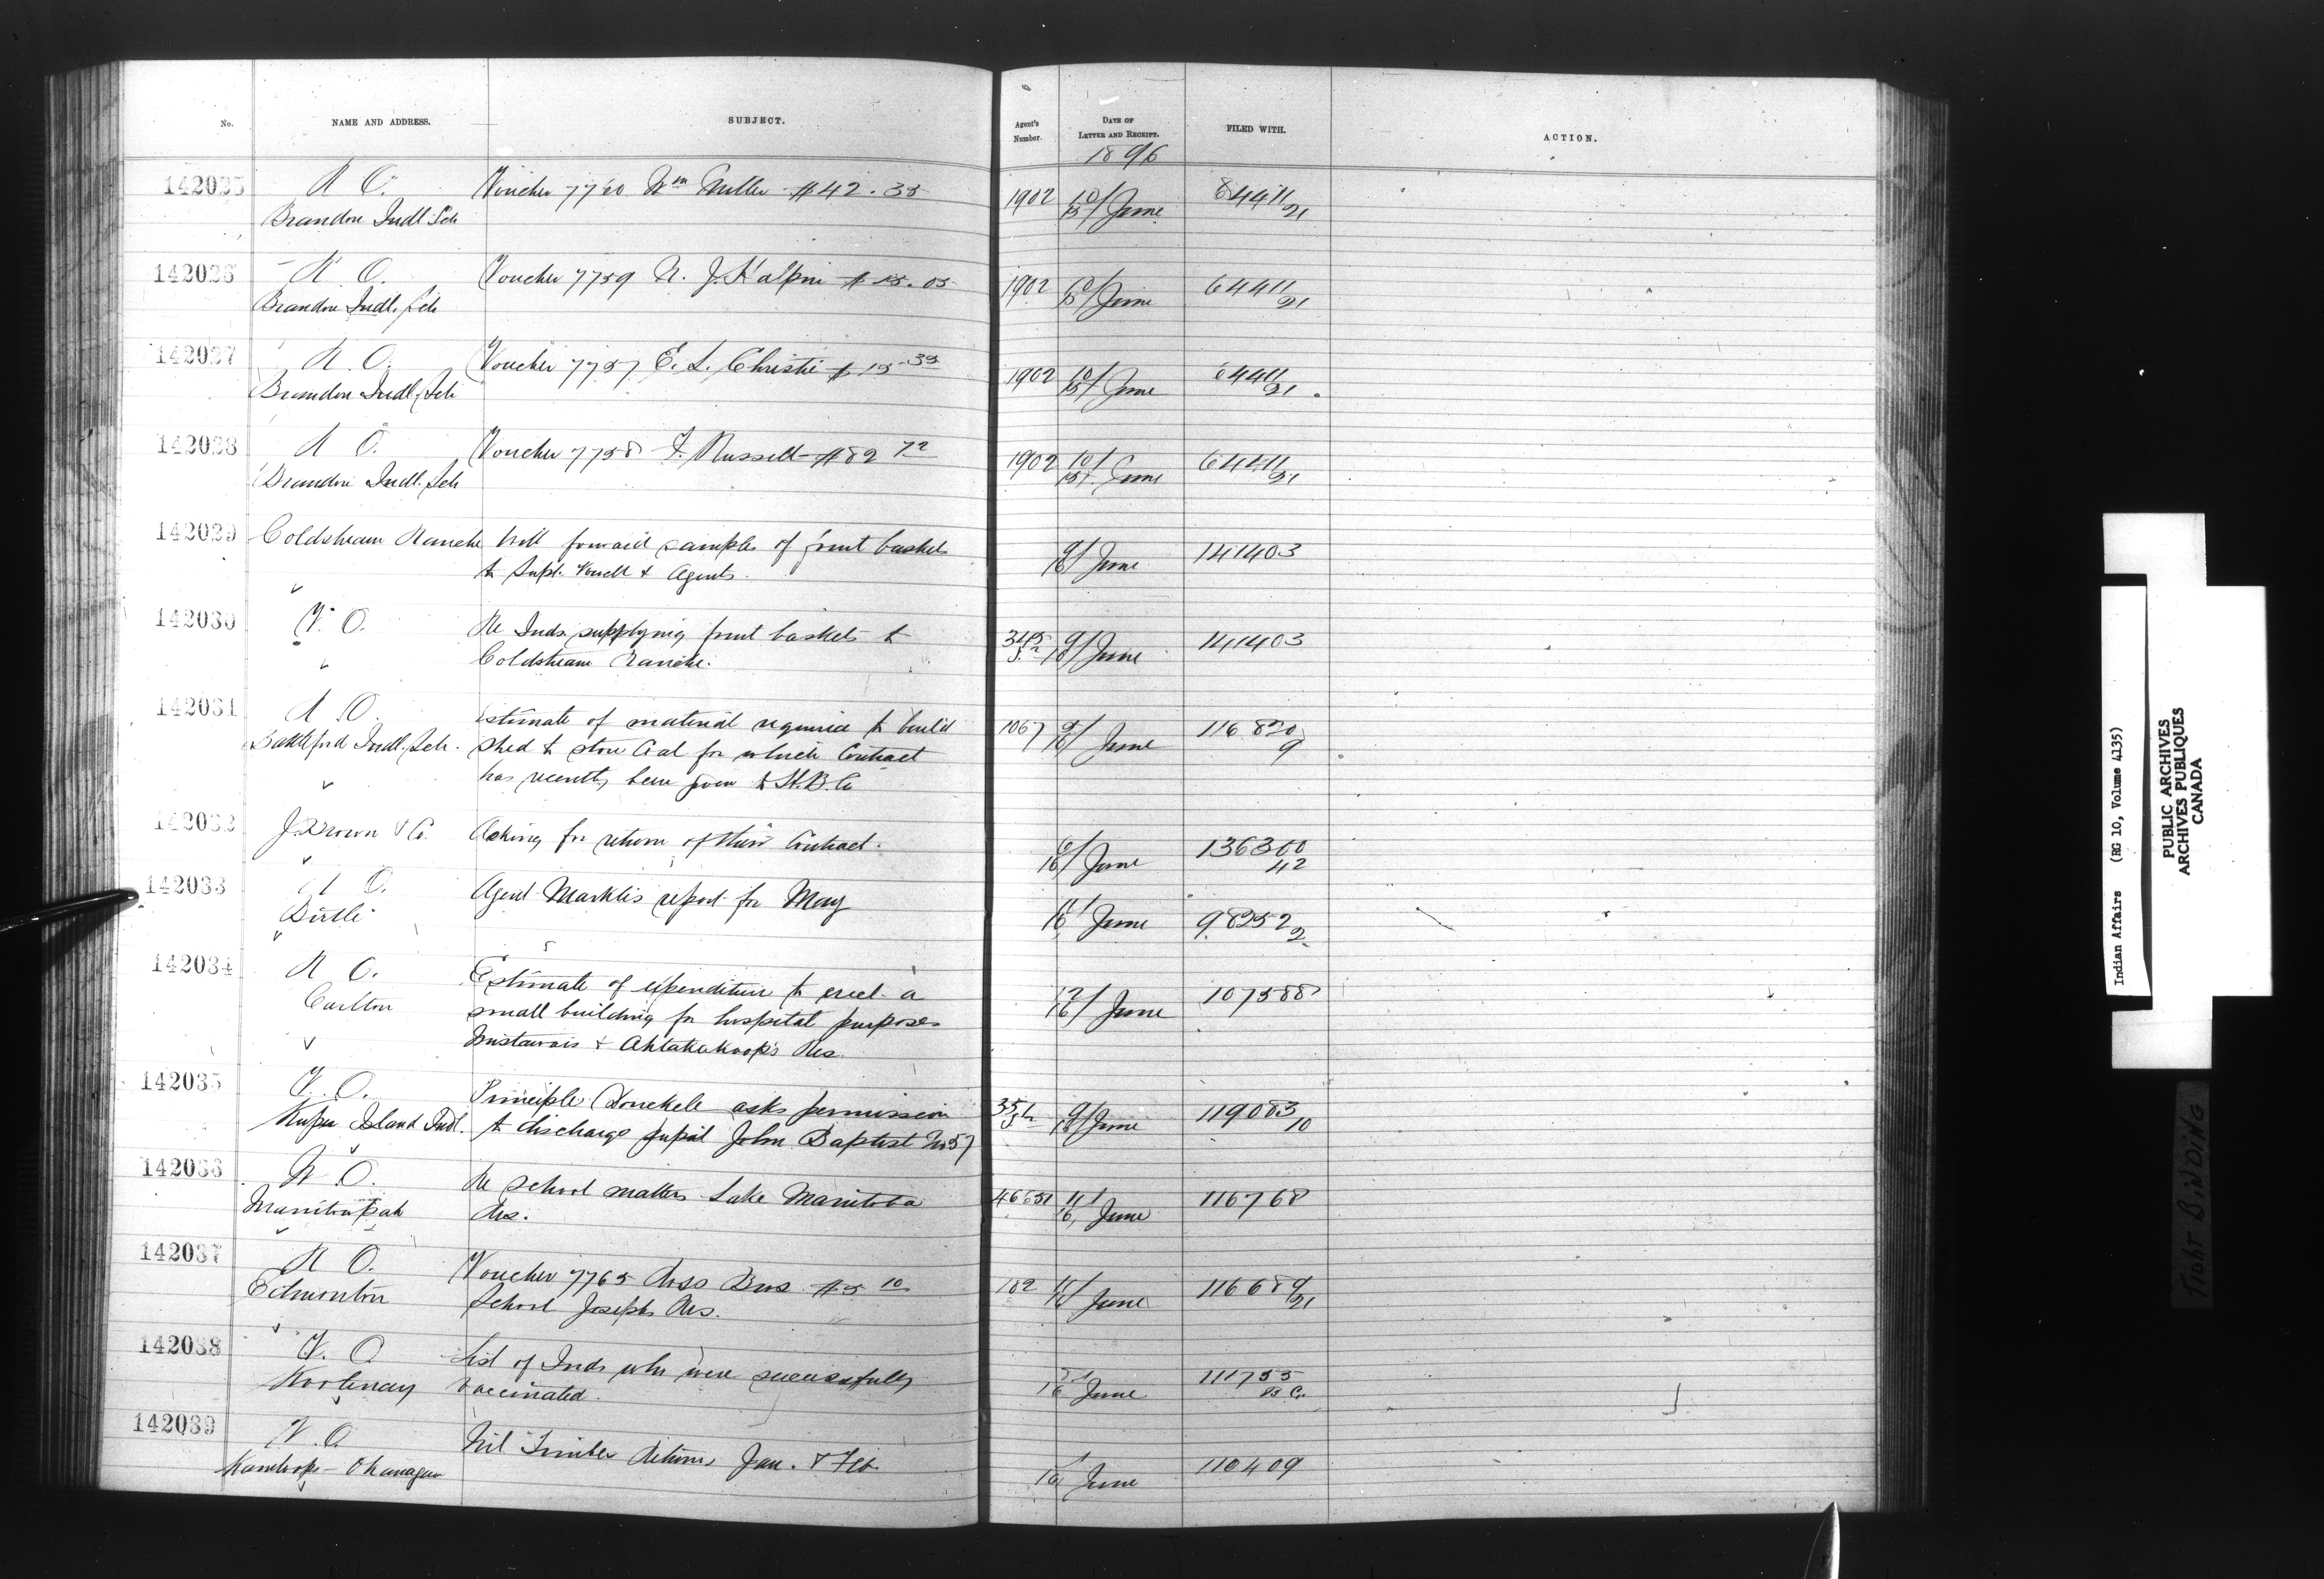 No. NAME AND ADDRESS. SUBJECT. Agent's Number. DATE OF LETTER AND RECEIPT. FILED WITH. ACTION.
1896
142025 R O. Voucher 7760 Wm Miller $42.35 1902 10/15 June 64411/21
Brandon Indl Sch
142026 R O. Voucher 7759 N. J. Halpin $15.05 1902 10/15 June 64411/21
Brandon Indl. Sch
142027 R O. Voucher 7757 E. L. Christie $15.35 1902 10/15 June 64411/21
Brandon Indl. Sch
142028 R O. Voucher 7758 F. Russell $82 72 1902 10/15 June 64411/21
Brandon Indl. Sch
142029 Coldstream Ranche Will forward samples of fruit baskets 9/16 June 141403
to Supt. Vowell & Agents.
142030 V. O. Re Inds. supplying fruit baskets to 345/2 9/16 June 141403
Coldstream Ranche.
142031 R O. Estimate of material required to build 1067 9/16 June 116820/9
Battleford Indl. Sch. shed to store Coal for which Contract
has recently been given to H.B.Co
142032 J. Brown & Co. Asking for return of their Contract. 6/16 June 136300/42
142033 R O. Agent Markle's report for May 11/16 June 98252/2
Birtle
142034 R O. Estimate of expenditure to erect a 12/16 June 107588
Carlton small building for hospital purposes
Mistawasis & Ahtahkakoop's Res.
142035 V. O. Principle Donckele asks permission 9/16 June 119083/10
Kuper Island Indl. to discharge pupil John Baptist No 57
142036 W O. Re school matters Lake Manitoba 11/16 June 116768
Manitowpah Res.
142037 R O. Voucher 7765 Ross Bros $5 10 182 11/16 June 116689/21
Edmonton School Josephs Res.
142038 V. O. List of Inds who were successfully 16 June 111755 B C.
Kootenay vaccinated.
142039 V. O. Nil Timber Returns Jan. & Feb. 16 June 110409
Kamloops - Okanagan
Indian Affairs (RG 10, Volume 4135)
PUBLIC ARCHIVES
ARCHIVES PUBLIQUES
CANADA
TIGHT BINDING